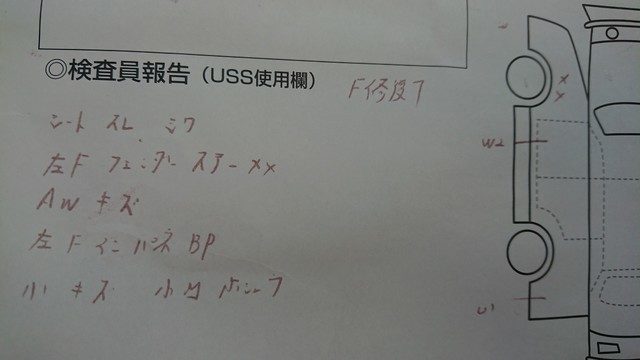 ◎検査員報告（USS使用欄）
F修復了
シート スレ シワ
左F フェンダー ステー ××
AW キズ
左F インパネ BP
小 キズ 小凹
×
×
W2
U1